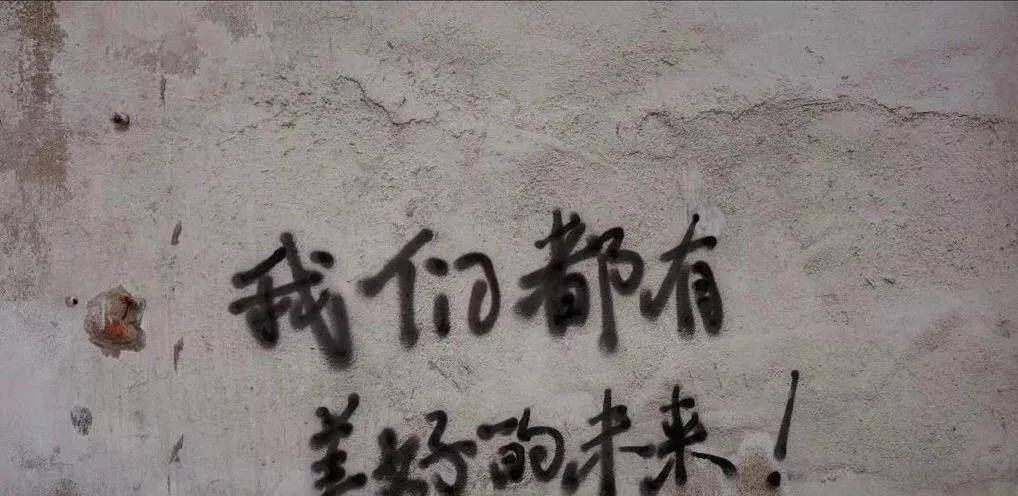 我们都有
美好的未来!